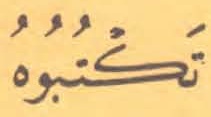 تَكْتُبُوهُ